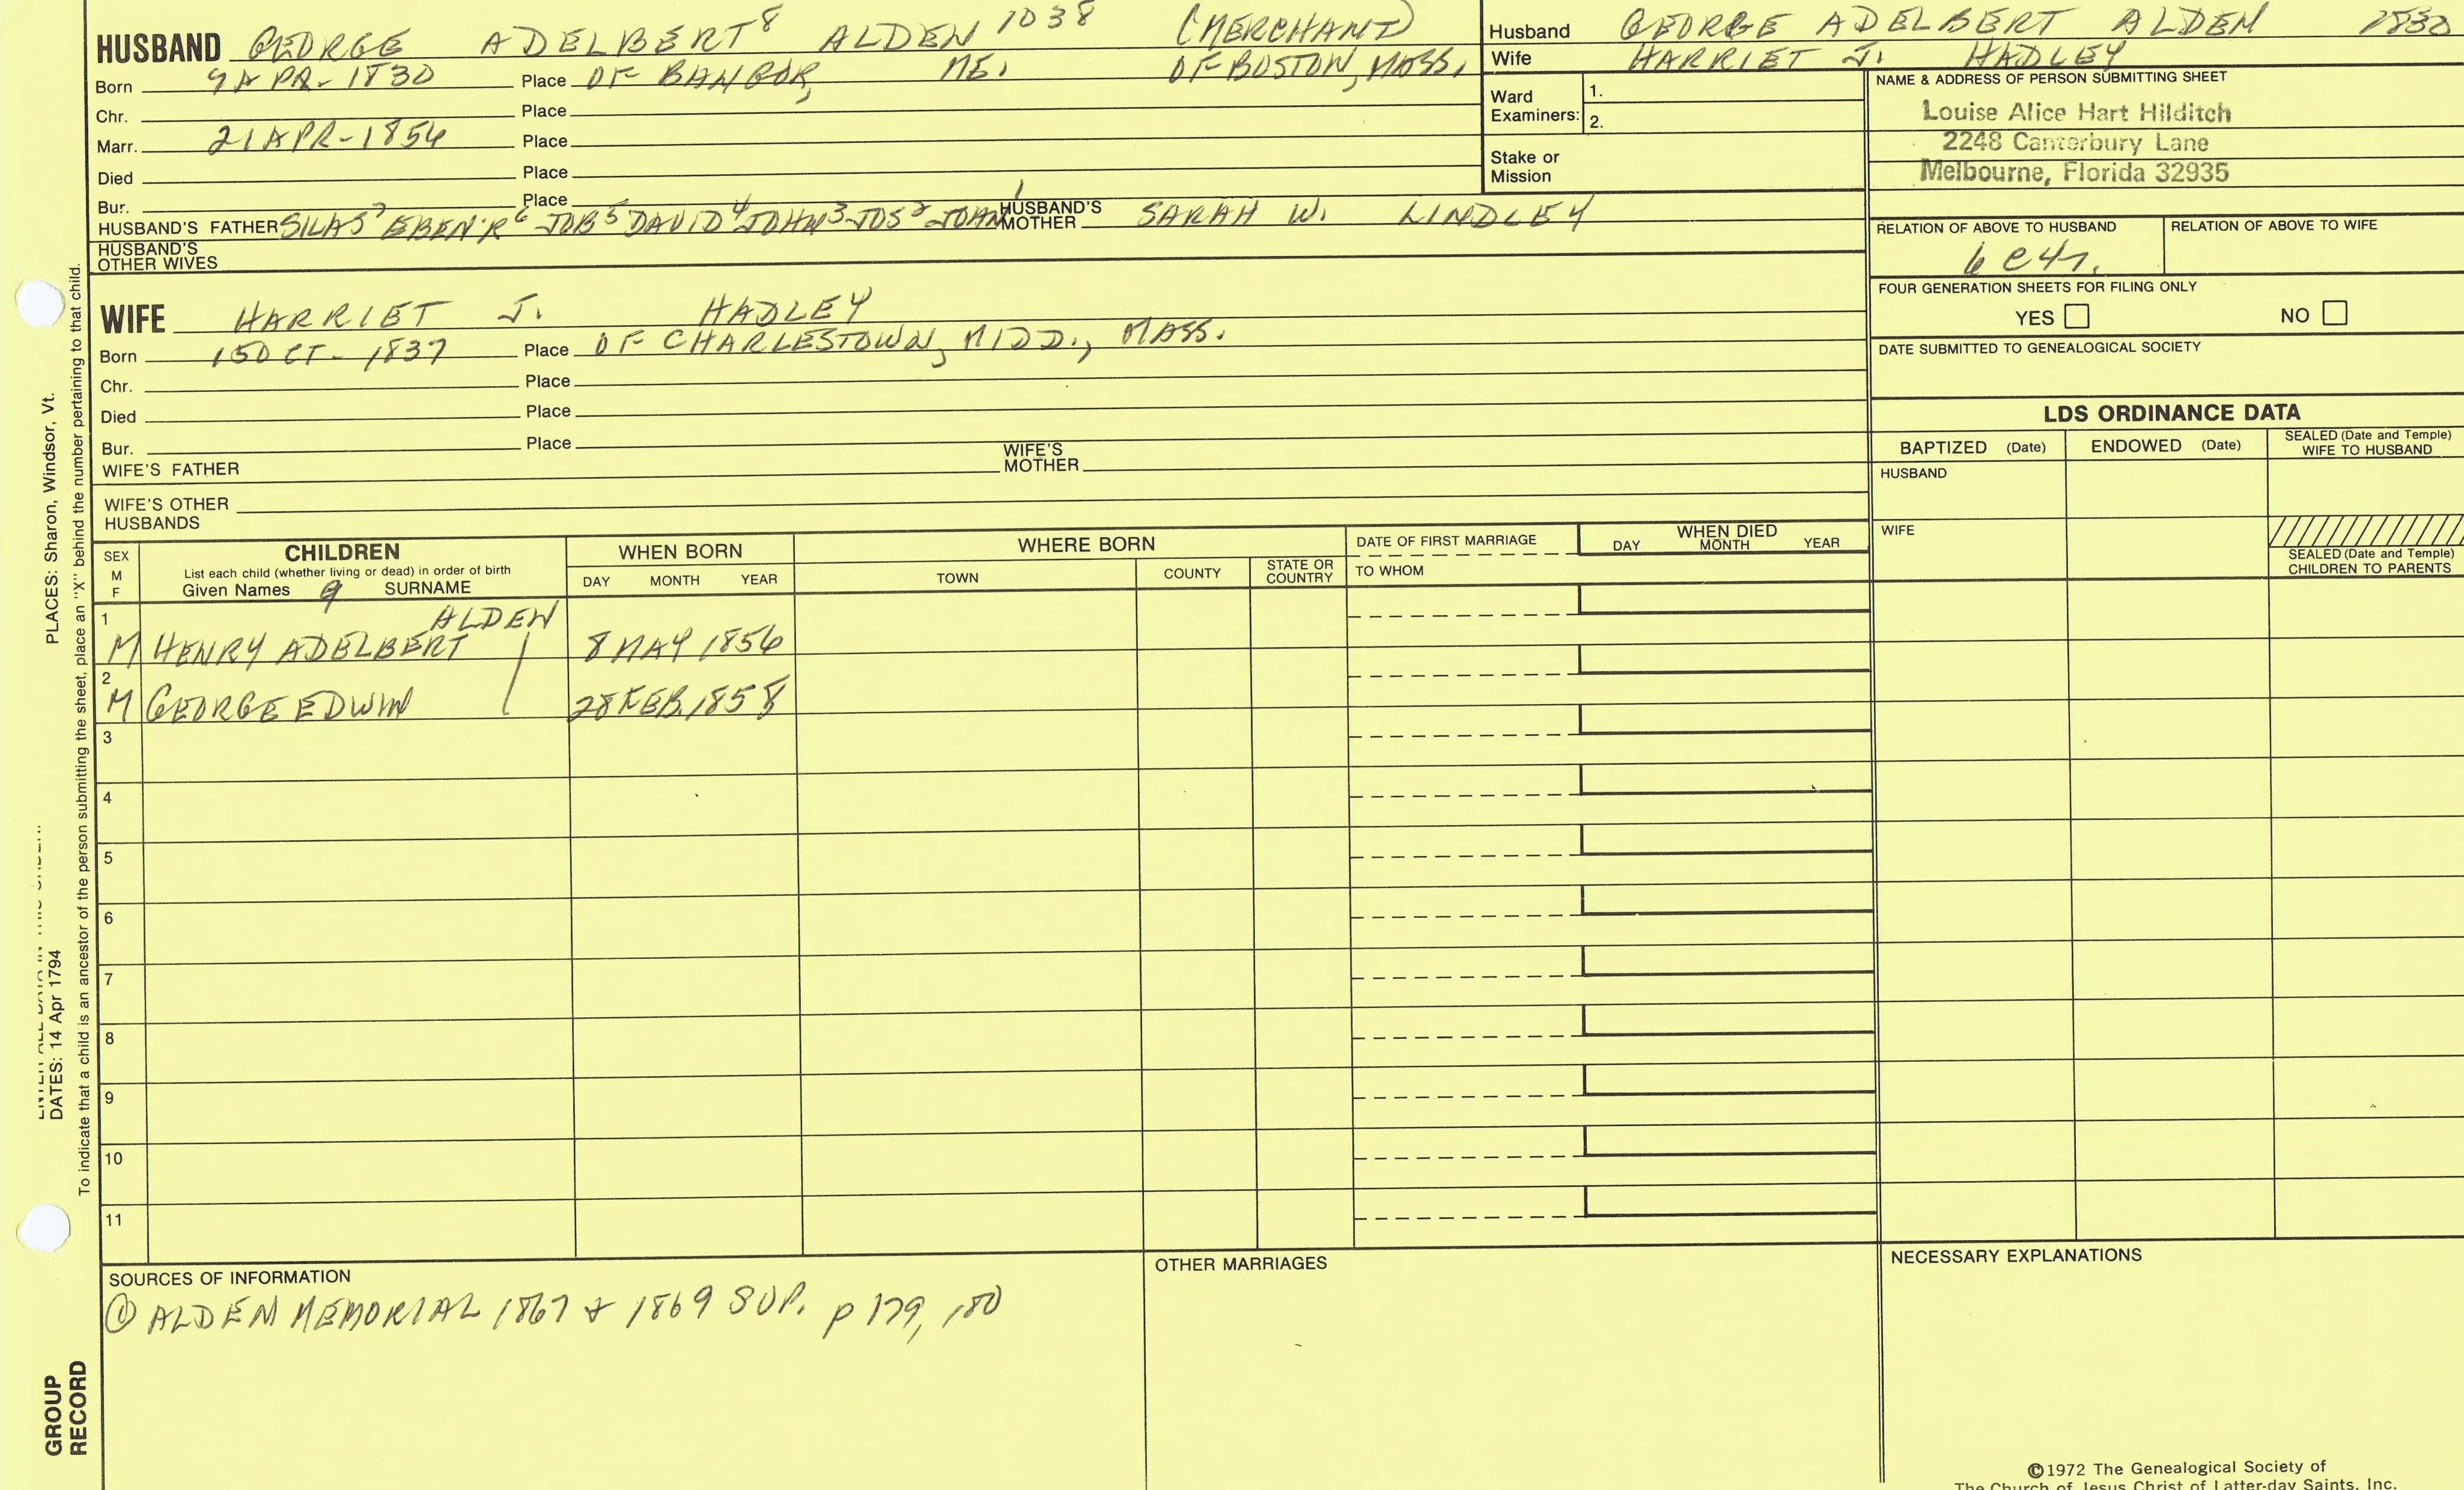 HUSBAND GEORGE ADELBERT⁸ ALDEN 1038 (MERCHANT)
Born 9 APR - 1830 Place OF BANGOR, ME. OF BOSTON, MASS.
Chr. Place
Marr. 21 APR - 1854 Place
Died Place
Bur. Place
HUSBAND'S FATHER SILAS⁷ EBEN'R⁶ JOB⁵ DAVID⁴ JOHN³ JOS² JOHN¹ HUSBAND'S MOTHER SARAH W. LINDLEY
HUSBAND'S OTHER WIVES
Husband GEORGE ADELBERT ALDEN 1830
Wife HARRIET J. HADLEY
Ward Examiners: 1.
2.
Stake or Mission
NAME & ADDRESS OF PERSON SUBMITTING SHEET
Louise Alice Hart Hilditch
2248 Canterbury Lane
Melbourne, Florida 32935
RELATION OF ABOVE TO HUSBAND RELATION OF ABOVE TO WIFE
6 C 4 r.
FOUR GENERATION SHEETS FOR FILING ONLY
YES NO
DATE SUBMITTED TO GENEALOGICAL SOCIETY
WIFE HARRIET J. HADLEY
Born 15 OCT - 1837 Place OF CHARLESTOWN, MIDD., MASS.
Chr. Place
Died Place
Bur. Place
WIFE'S FATHER WIFE'S MOTHER
WIFE'S OTHER HUSBANDS
LDS ORDINANCE DATA
BAPTIZED (Date) ENDOWED (Date) SEALED (Date and Temple) WIFE TO HUSBAND
HUSBAND
WIFE
SEALED (Date and Temple) CHILDREN TO PARENTS
SEX M F CHILDREN WHEN BORN WHERE BORN DATE OF FIRST MARRIAGE WHEN DIED
List each child (whether living or dead) in order of birth
Given Names 9 SURNAME DAY MONTH YEAR TOWN COUNTY STATE OR COUNTRY TO WHOM DAY MONTH YEAR
1 ALDEN
M HENRY ADELBERT 8 MAY 1856
2
M GEORGE EDWIN 28 FEB. 1858
3
4
5
6
7
8
9
10
11
SOURCES OF INFORMATION
① ALDEN MEMORIAL 1867 & 1869 SUP. p 179, 180
OTHER MARRIAGES
NECESSARY EXPLANATIONS
©1972 The Genealogical Society of
The Church of Jesus Christ of Latter-day Saints, Inc.
PLACES: Sharon, Windsor, Vt.
DATES: 14 Apr 1794
To indicate that a child is an ancestor of the person submitting the sheet, place an "X" behind the number pertaining to that child.
GROUP
RECORD